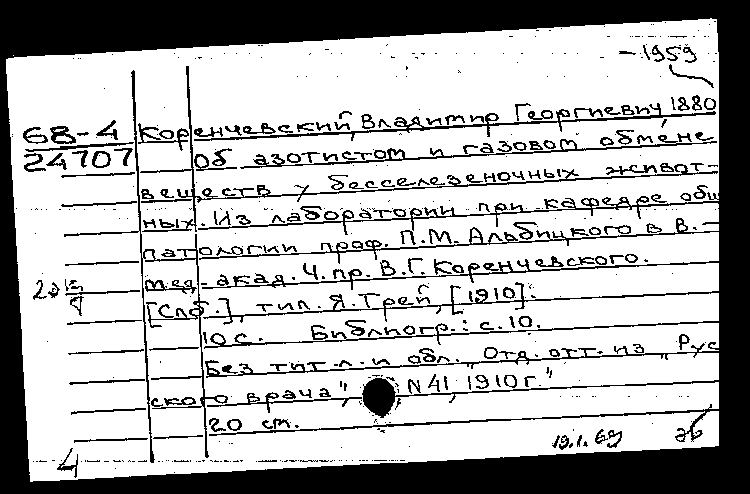 - 1959
68-4 Коренчевский, Владимир Георгиевич, 1880
24707 Об азотистом и газовом обмене
веществ у бесселезеночных живот-
ных. Из лаборатории при кафедре общ
патологии проф. П.М. Альбицкого в В.-
мед-акад. Ч. пр. В.Г. Коренчевского.
[Спб.], тип. Я. Трей, [1910].
10 с. Библиогр.: с. 10.
Без тит. л. и обл. „Отд. отт. из „Рус
ского врача", N 41, 1910 г."
20 см.
19.1.69
4